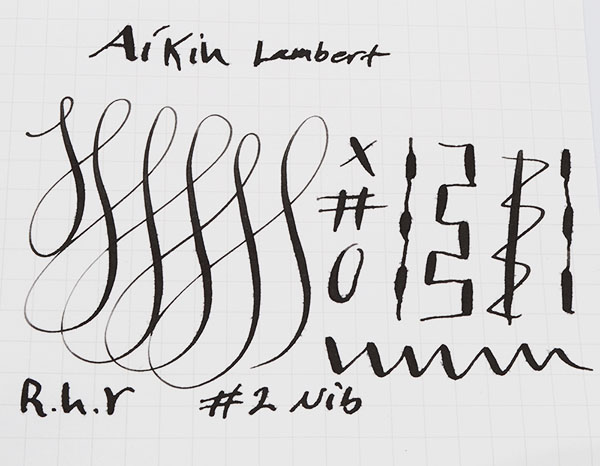 Aikin Lambert
X
#
O
R.h.r #2 Nib